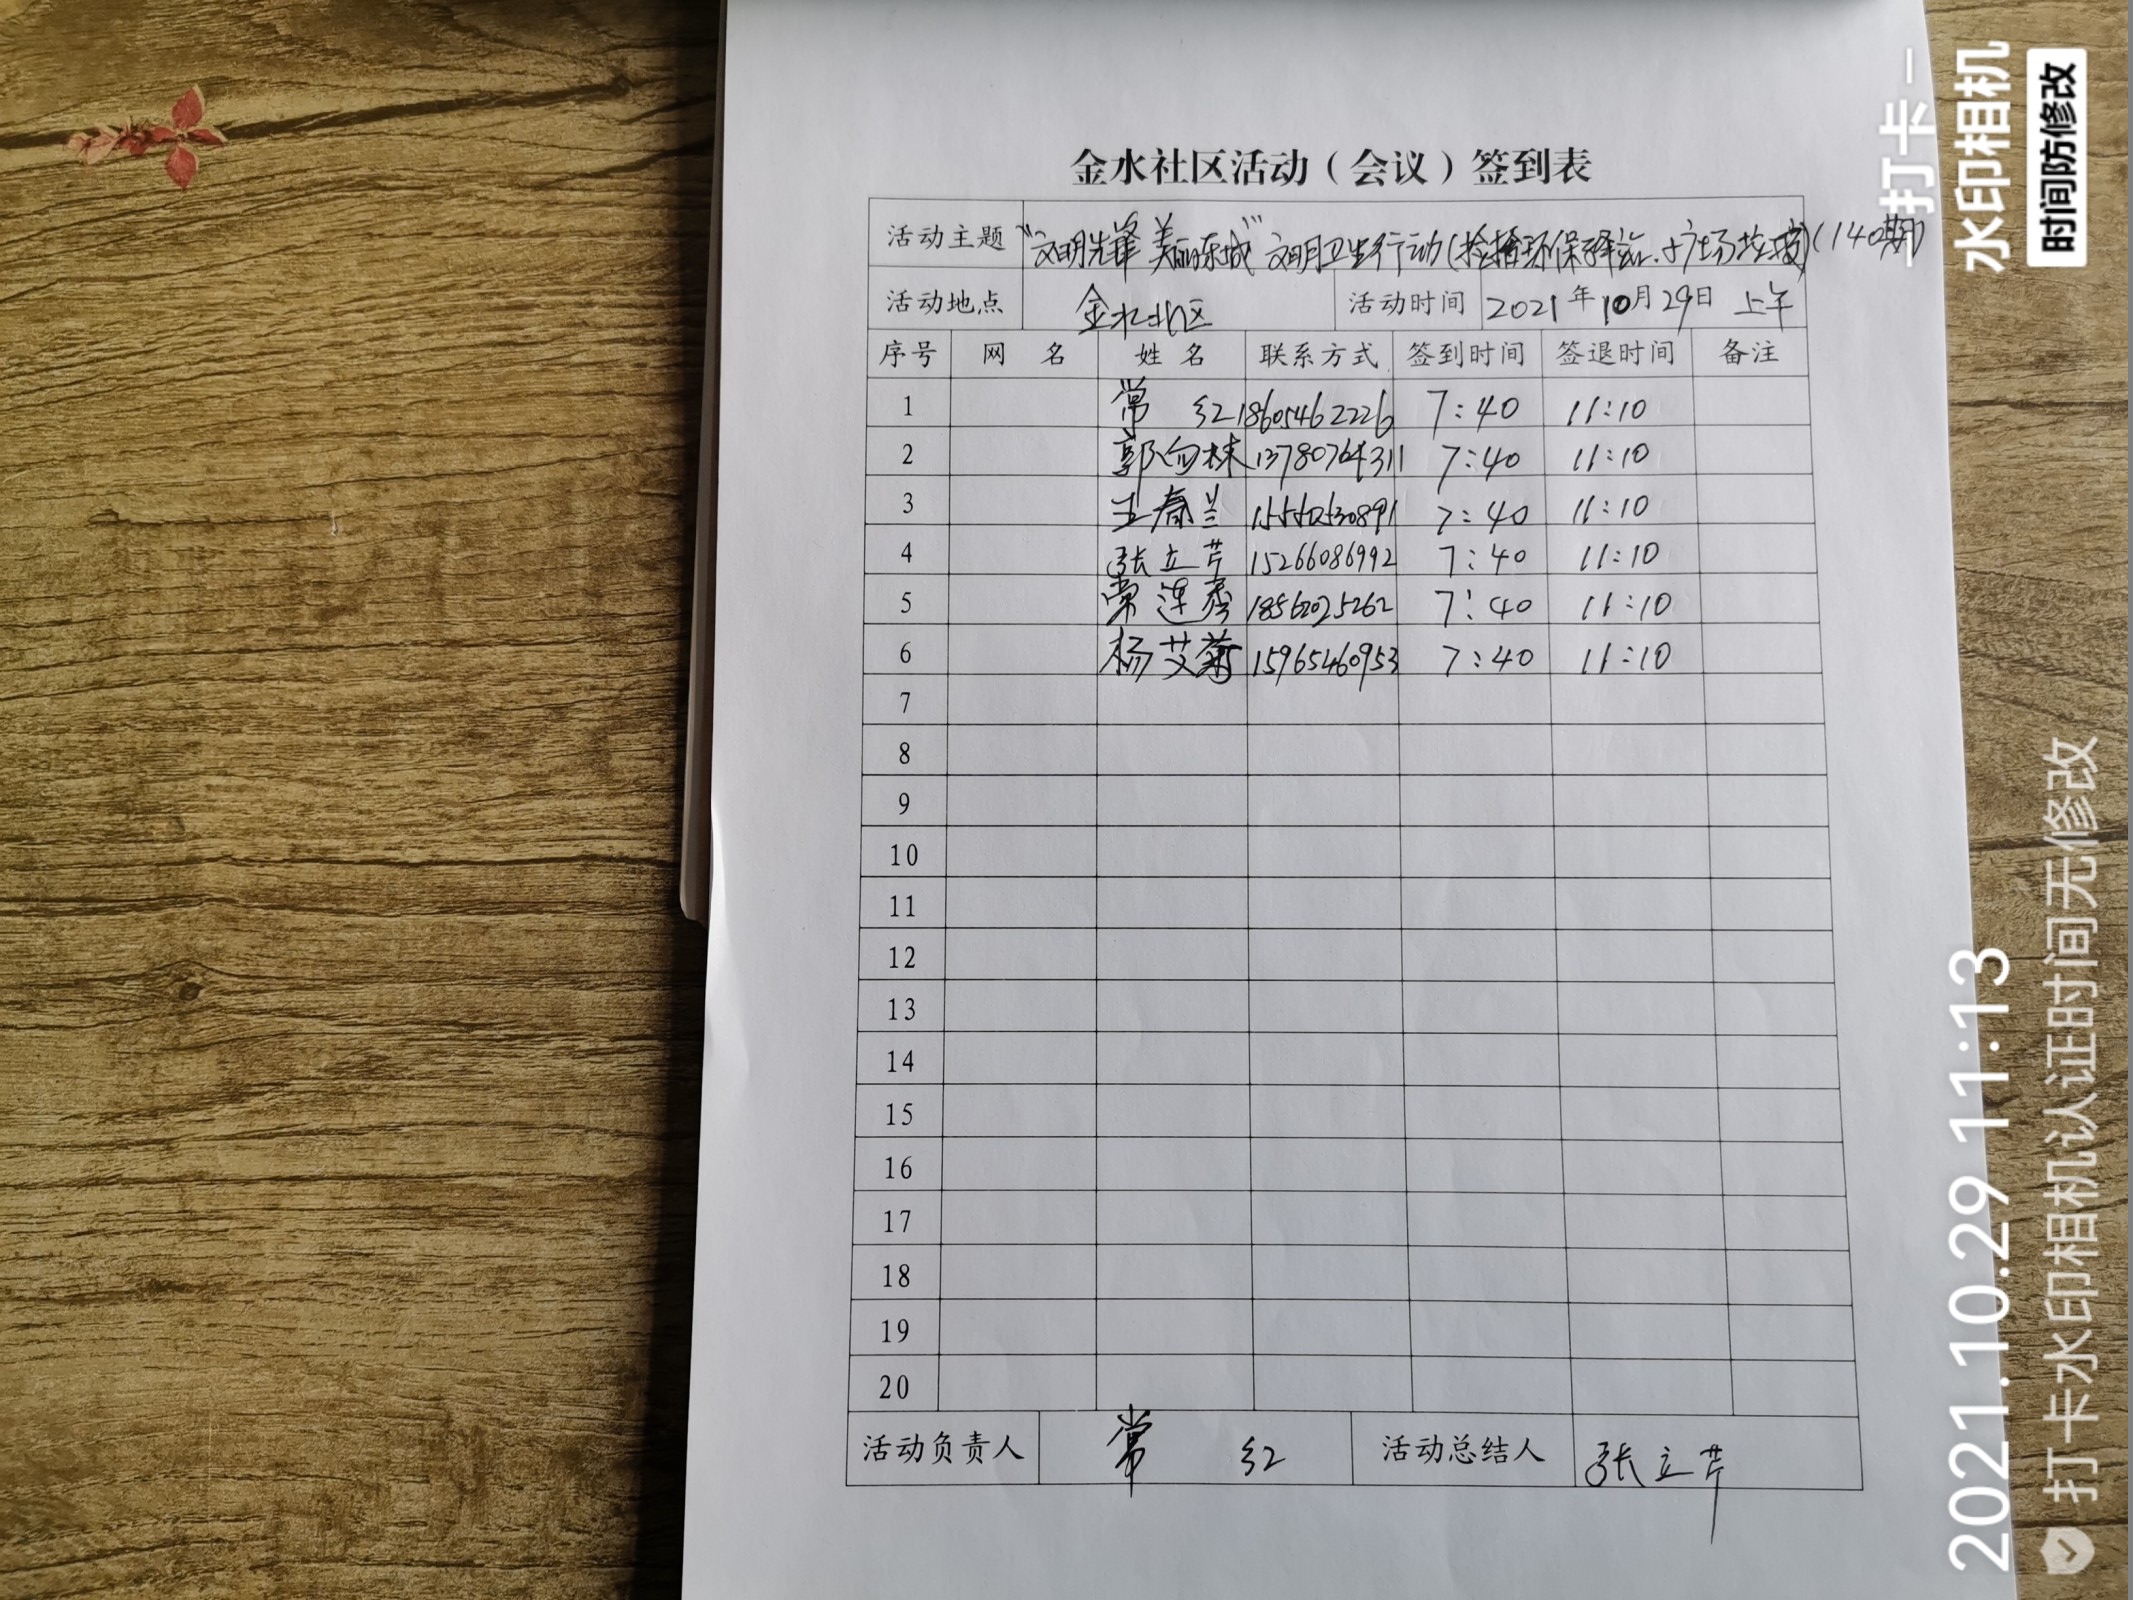 金水社区活动（会议）签到表
活动主题 "文明先锋 美丽东城" 文明卫生行动(捡拾环保驿站、广场垃圾)(140期)
活动地点 金水北区 活动时间 2021年10月29日 上午
序号 网 名 姓 名 联系方式 签到时间 签退时间 备注
1 常 红 18605462226 7:40 11:10
2 郭向林 13780764311 7:40 11:10
3 王春兰 15550530891 7:40 11:10
4 张立芹 15266086992 7:40 11:10
5 常连秀 18562025262 7:40 11:10
6 杨艾菊 15965460953 7:40 11:10
7
8
9
10
11
12
13
14
15
16
17
18
19
20
活动负责人 常 红 活动总结人 张立芹
打卡
水印相机
时间防修改
2021.10.29 11:13
打卡水印相机认证时间无修改